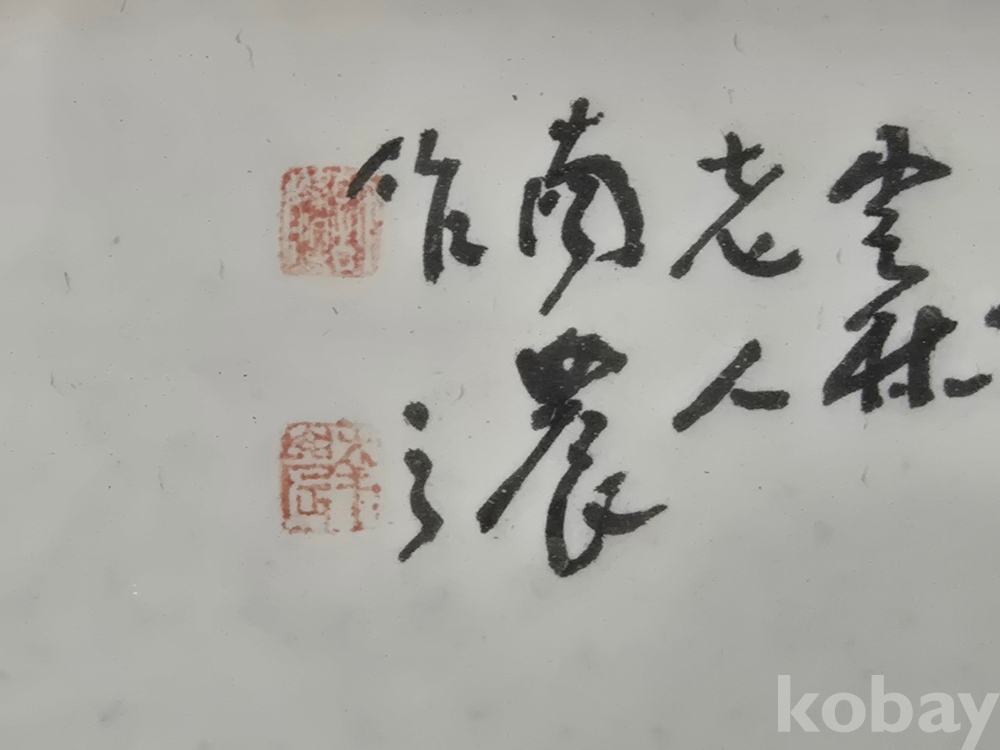 雲林
老人
南農
作之
kobay